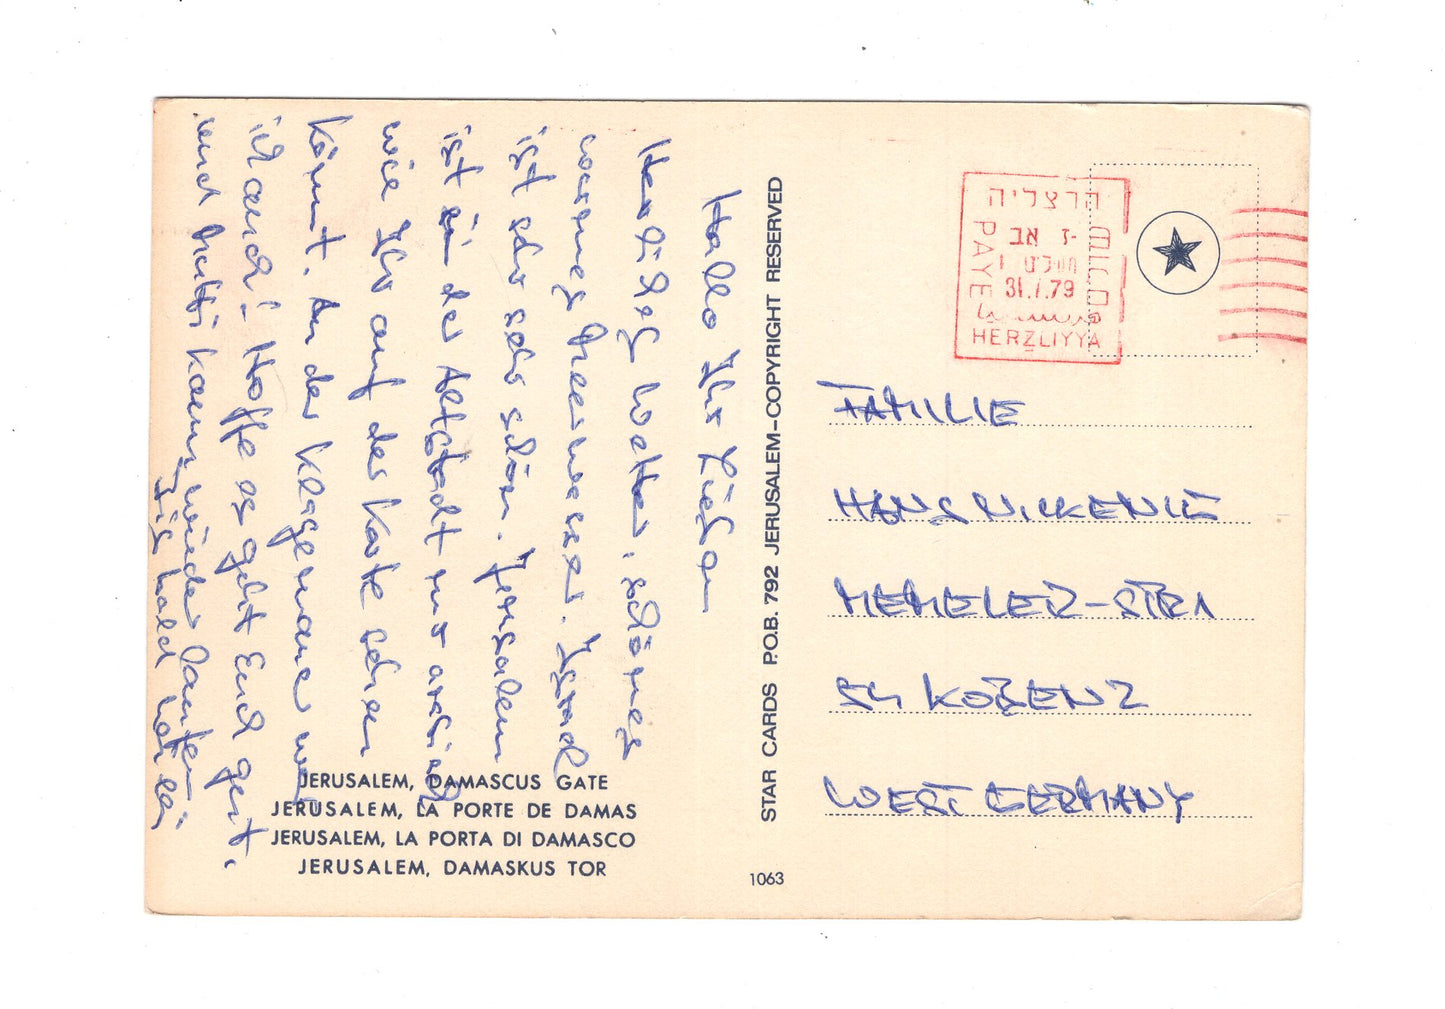 Hallo Ihr Lieben
Herrliches Wetter, schönes
warmes Meerwasser. Israel
ist sehr sehr schön. Jerusalem
ist in der Altstadt nur arabisch
wie Ihr auf der Karte sehen
könnt. An der Klagemauer war
ich auch! Hoffe es geht Euch gut.
und Mutti kann wieder laufen
Bis bald
JERUSALEM, DAMASCUS GATE
JERUSALEM, LA PORTE DE DAMAS
JERUSALEM, LA PORTA DI DAMASCO
JERUSALEM, DAMASKUS TOR
1063
STAR CARDS P.O.B. 792 JERUSALEM-COPYRIGHT RESERVED
הרצליה
PAYE
שולם
ז- אב
31.7.79
HERZLIYYA
FAMILIE
HANS
MEMELER-STR
54 KOBLENZ
WEST GERMANY